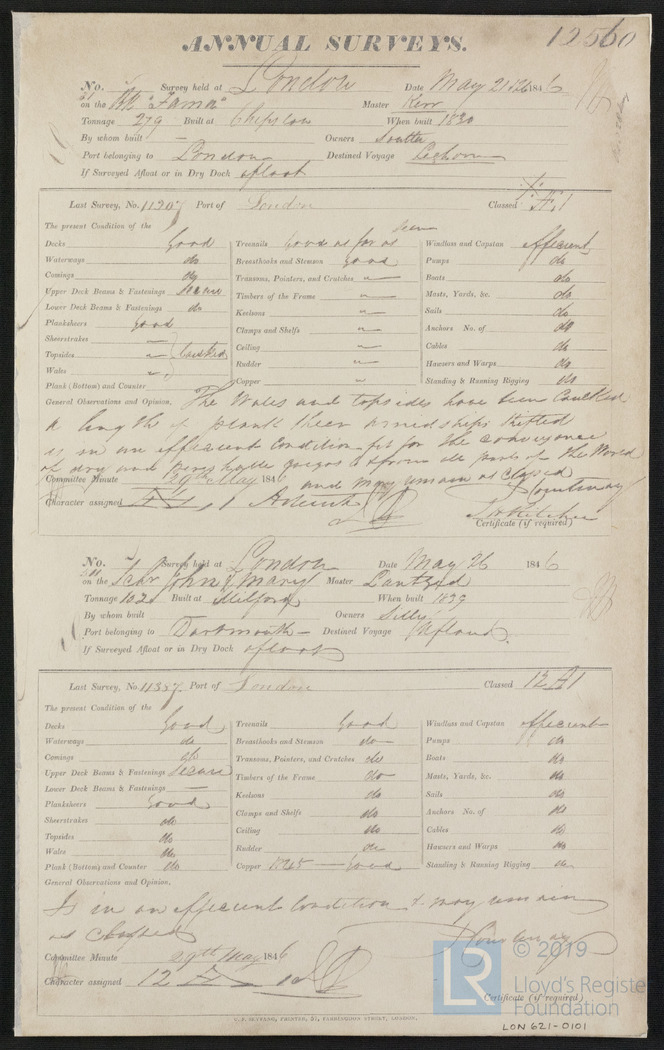 ANNUAL SURVEYS. 12560
No. Survey held at London Date May 21 & 26 1846
on the Bk "Fama" Master Kerr
Tonnage 279 Built at Chepstow When built 1820
By whom built — Owners Soutter
Port belonging to London Destined Voyage Leghorn
If Surveyed Afloat or in Dry Dock afloat
Last Survey, No. 11907 Port of London Classed Æ 1
The present Condition of the
Decks Good Treenails Good as far as seen Windlass and Capstan Efficient
Waterways do Breasthooks and Stemson Good Pumps do
Comings do Transoms, Pointers, and Crutches " Boats do
Upper Deck Beams & Fastenings Secure Timbers of the Frame " Masts, Yards, &c. do
Lower Deck Beams & Fastenings do Keelsons " Sails do
Planksheers Good Clamps and Shelfs " Anchors No. of do
Sheerstrakes " Ceiling " Cables do
Topsides " Caulked Rudder " Hawsers and Warps do
Wales " Copper " Standing & Running Rigging do
Plank (Bottom) and Counter
General Observations and Opinion, The Wales and topsides have been Caulked
a length of plank then amidships shifted
is in an efficient Condition fit for the conveyance
of dry and perishable Cargos to & from all parts of the World
Committee Minute 29th May 1846 and may remain as Classed
Character assigned Æ 1 Courtenay
Certificate (if required)
No. Survey held at London Date May 26 1846
on the John & Mary Master
Tonnage 102 Built at Milford When built 1839
By whom built Owners
Port belonging to Dartmouth — Destined Voyage
If Surveyed Afloat or in Dry Dock afloat
Last Survey, No. 11357 Port of London Classed 12 A 1
The present Condition of the
Decks Good Treenails Good Windlass and Capstan Efficient
Waterways do Breasthooks and Stemson do Pumps do
Comings do Transoms, Pointers, and Crutches do Boats do
Upper Deck Beams & Fastenings Secure Timbers of the Frame do Masts, Yards, &c. do
Lower Deck Beams & Fastenings — Keelsons do Sails do
Planksheers Good Clamps and Shelfs do Anchors No. of do
Sheerstrakes do Ceiling do Cables do
Topsides do Rudder do Hawsers and Warps do
Wales do Copper 1845 — Good Standing & Running Rigging do
Plank (Bottom) and Counter do
General Observations and Opinion,
Is in an efficient Condition & may remain
as Classed Courtenay
Committee Minute 29th May 1846
Character assigned 12 A 1
Certificate (if required)
PRINTER, 27, FARRINGDON STREET, LONDON.
LR © 2019
Lloyd's Register
Foundation
LON 621-0101